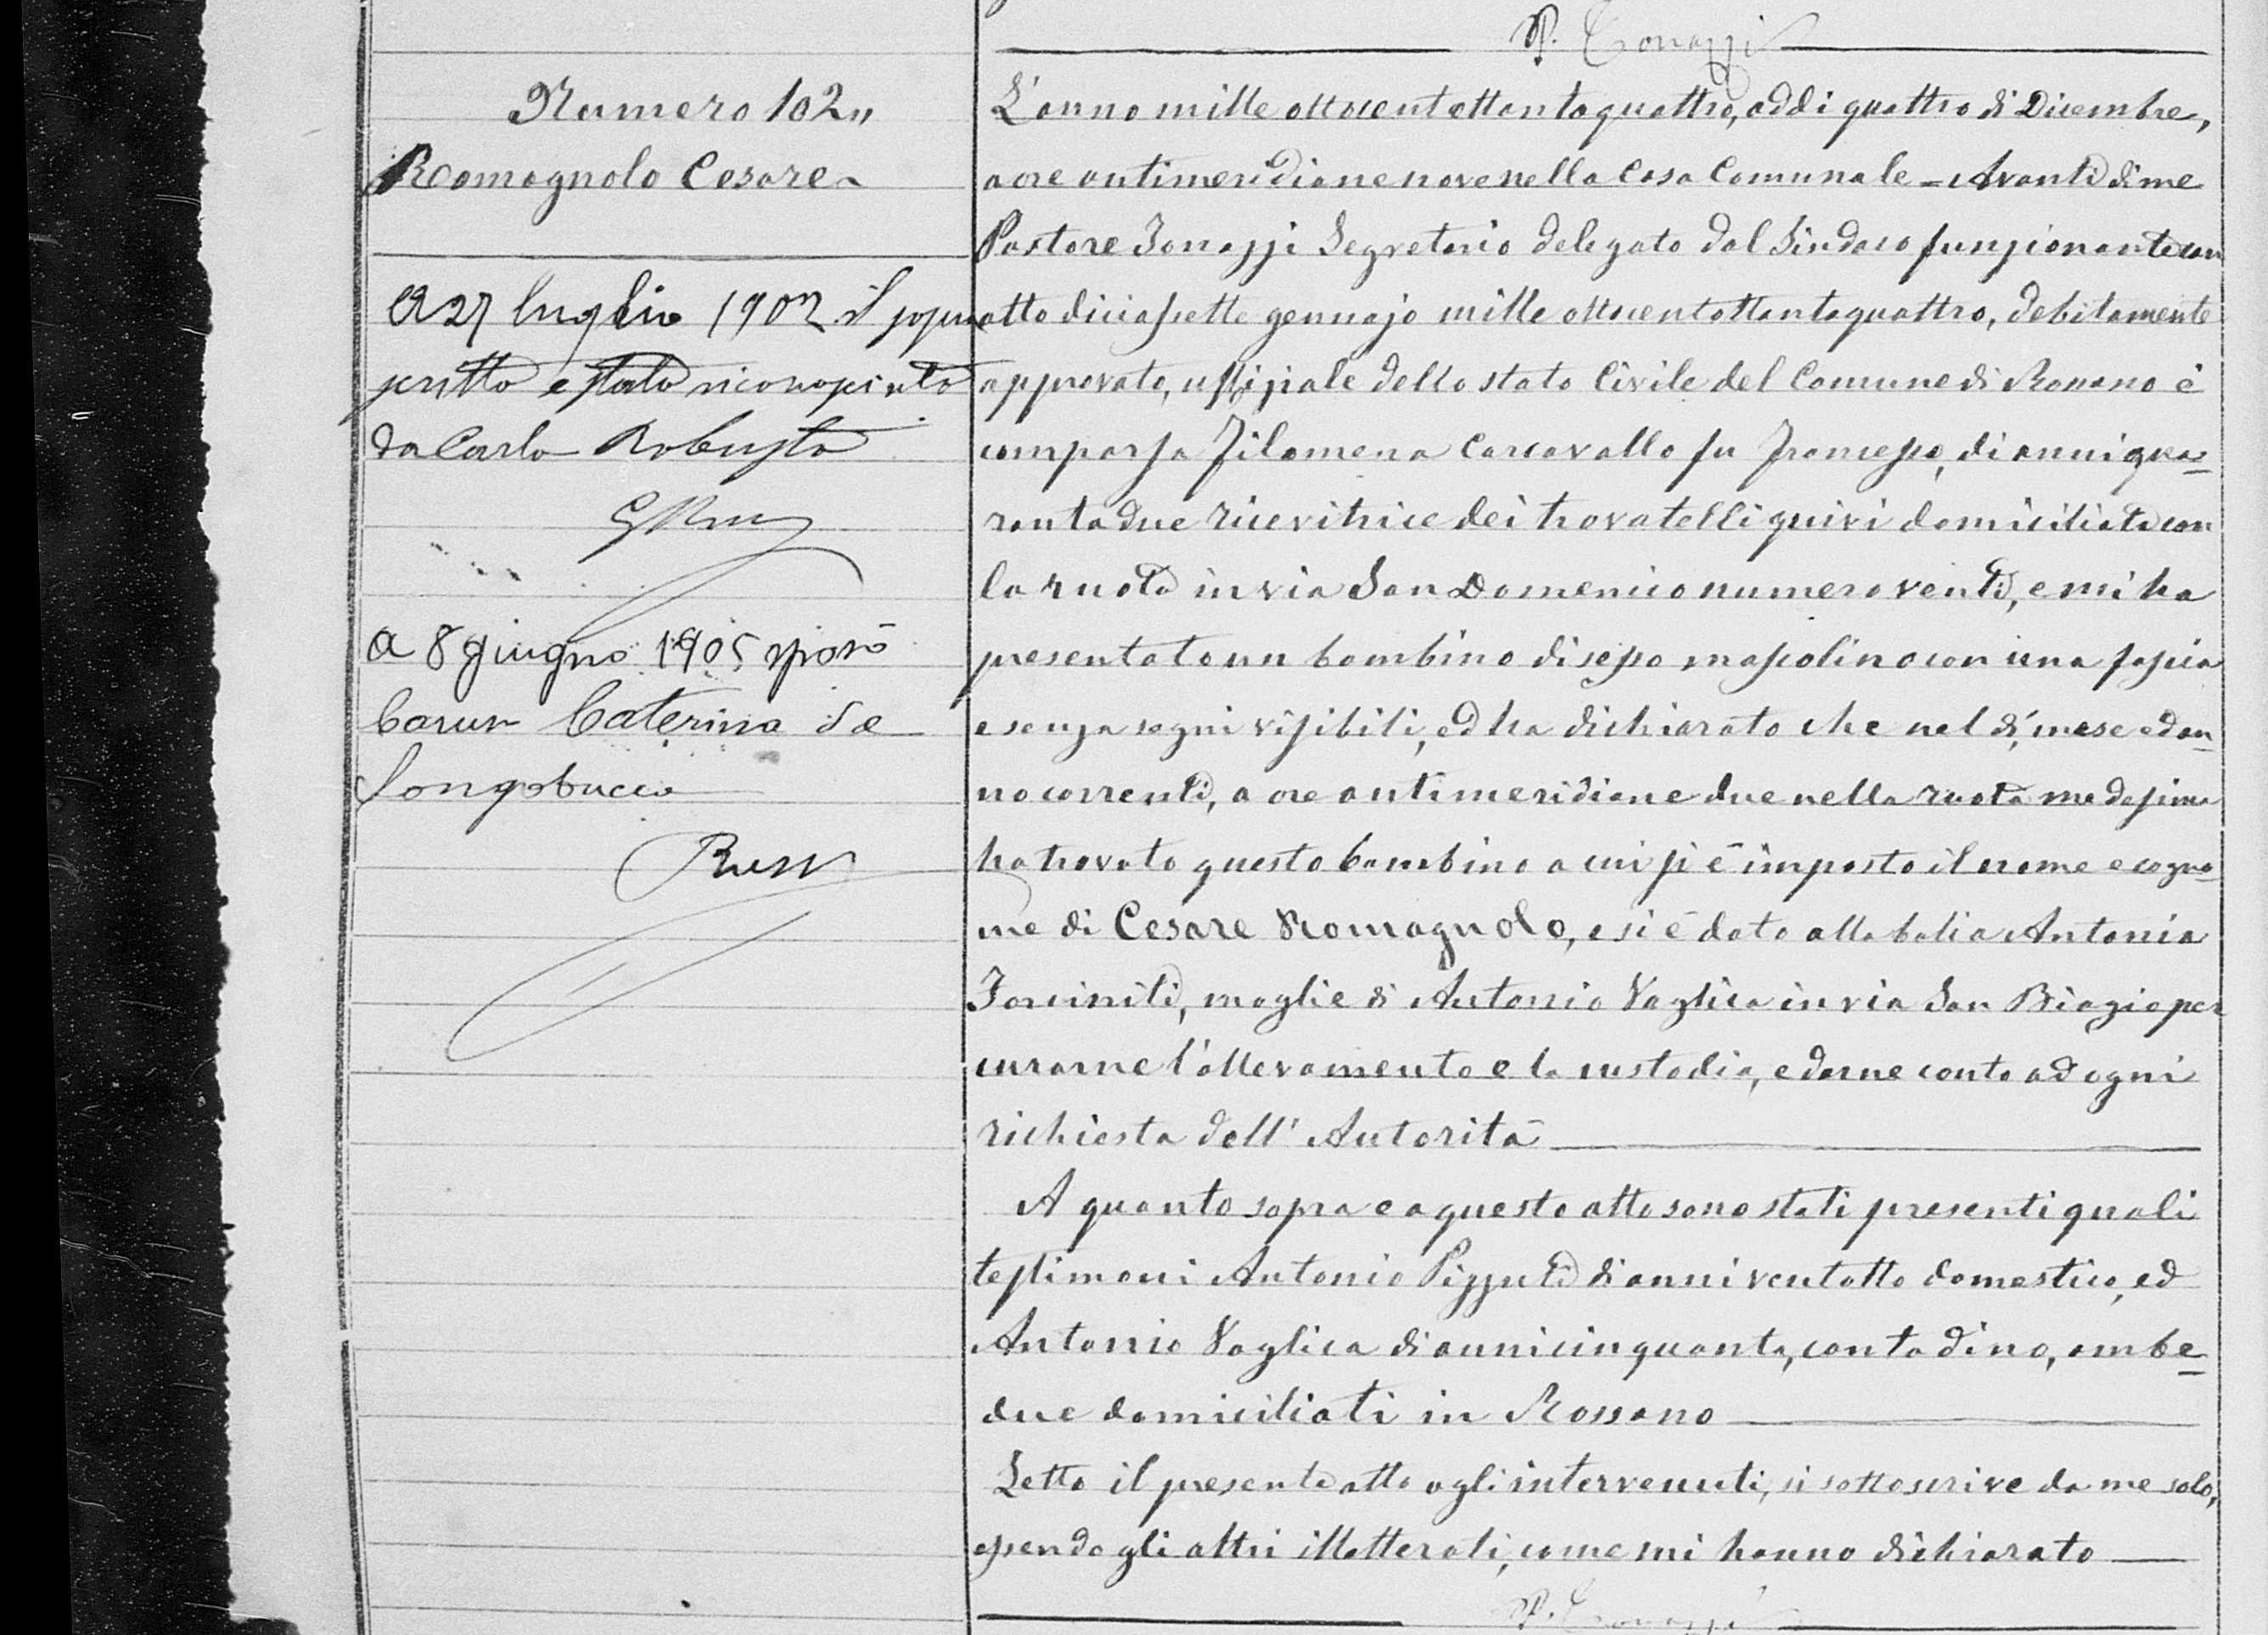 P. Tonazzi
Numero 102"
Romagnolo Cesare
A 27 luglio 1902 il sopra
scritto e stato riconosciuto
da Carlo Robusto
A 8 giugno 1905 sposò
Caruso Caterina da
Longobucco
Russo
L'anno mille ottocentottantaquattro, addi quattro di Dicembre,
a ore antimeridiane nove nella Casa Comunale = Avanti di me
Pastore Tonazzi Segretario delegato dal Sindaco funzionante con
atto diciassette gennajo mille ottocentottantaquattro, debitamente
approvato, uffiziale dello stato Civile del Comune di Rossano è
comparsa Filomena Carcavallo fu Francesco, di anni qua=
rantadue ricevitrice dei trovatelli quivi domiciliata con
la ruota in via San Domenico numero venti, e mi ha
presentato un bambino di sesso mascolino con una fascia
e senza segni visibili, ed ha dichiarato che nel dì, mese ed an=
no correnti, a ore antimeridiane due nella ruota medesima
ha trovato questo bambino a cui si è imposto il nome e cogno=
me di Cesare Romagnolo, e si è dato alla balia Antonia
Forciniti, moglie di Antonio Vaglica in via San Biagio per
curarne l'allevamento e la custodia, e darne conto ad ogni
richiesta dell' Autorità
A quanto sopra e a questo atto sono stati presenti quali
testimoni Antonio Pizzuti di anni ventotto domestico, ed
Antonio Vaglica di anni cinquanta, contadino, ambe=
due domiciliati in Rossano
Letto il presente atto agli intervenuti, si sottoscrive da me solo,
essendo gli altri illetterati, come mi hanno dichiarato
P. Tonazzi